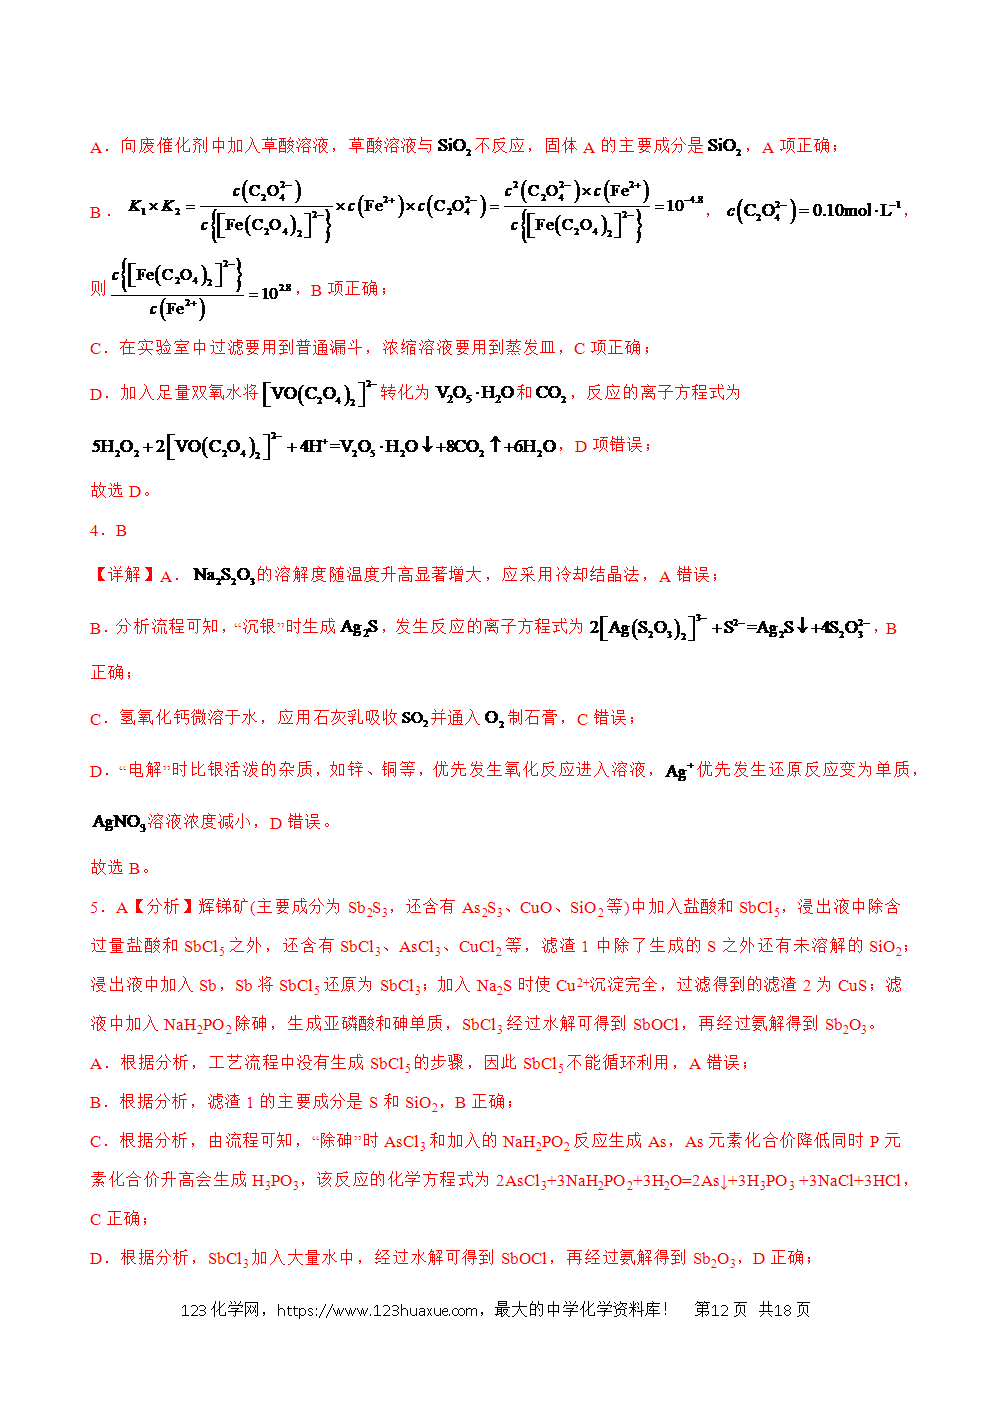 A．向废催化剂中加入草酸溶液，草酸溶液与SiO₂不反应，固体 A 的主要成分是SiO₂，A 项正确；
B．K₁×K₂ = c(C₂O₄²⁻)/c{[Fe(C₂O₄)₂]²⁻} ×c(Fe²⁺)×c(C₂O₄²⁻) = c²(C₂O₄²⁻)×c(Fe²⁺)/c{[Fe(C₂O₄)₂]²⁻} = 10⁻⁴·⁸，c(C₂O₄²⁻) = 0.10mol·L⁻¹，
则 c{[Fe(C₂O₄)₂]²⁻}/c(Fe²⁺) = 10²·⁸，B 项正确；
C．在实验室中过滤要用到普通漏斗，浓缩溶液要用到蒸发皿，C 项正确；
D．加入足量双氧水将[VO(C₂O₄)₂]²⁻转化为V₂O₅·H₂O和CO₂，反应的离子方程式为
5H₂O₂+2[VO(C₂O₄)₂]²⁻+4H⁺=V₂O₅·H₂O↓+8CO₂↑+6H₂O，D 项错误；
故选 D。
4．B
【详解】A．Na₂S₂O₃的溶解度随温度升高显著增大，应采用冷却结晶法，A 错误；
B．分析流程可知，“沉银”时生成Ag₂S，发生反应的离子方程式为2[Ag(S₂O₃)₂]³⁻+S²⁻=Ag₂S↓+4S₂O₃²⁻，B
正确；
C．氢氧化钙微溶于水，应用石灰乳吸收SO₂并通入O₂制石膏，C 错误；
D．“电解”时比银活泼的杂质，如锌、铜等，优先发生氧化反应进入溶液，Ag⁺优先发生还原反应变为单质，
AgNO₃溶液浓度减小，D 错误。
故选 B。
5．A【分析】辉锑矿(主要成分为 Sb₂S₃，还含有 As₂S₃、CuO、SiO₂等)中加入盐酸和 SbCl₅，浸出液中除含
过量盐酸和 SbCl₅之外，还含有 SbCl₃、AsCl₃、CuCl₂等，滤渣 1 中除了生成的 S 之外还有未溶解的 SiO₂；
浸出液中加入 Sb，Sb 将 SbCl₅还原为 SbCl₃；加入 Na₂S 时使 Cu²⁺沉淀完全，过滤得到的滤渣 2 为 CuS；滤
液中加入 NaH₂PO₂除砷，生成亚磷酸和砷单质，SbCl₃经过水解可得到 SbOCl，再经过氨解得到 Sb₂O₃。
A．根据分析，工艺流程中没有生成 SbCl₅的步骤，因此 SbCl₅不能循环利用，A 错误；
B．根据分析，滤渣 1 的主要成分是 S 和 SiO₂，B 正确；
C．根据分析，由流程可知，“除砷”时 AsCl₃和加入的 NaH₂PO₂反应生成 As，As 元素化合价降低同时 P 元
素化合价升高会生成 H₃PO₃，该反应的化学方程式为 2AsCl₃+3NaH₂PO₂+3H₂O=2As↓+3H₃PO₃ +3NaCl+3HCl，
C 正确；
D．根据分析，SbCl₃加入大量水中，经过水解可得到 SbOCl，再经过氨解得到 Sb₂O₃，D 正确；
123化学网，https://www.123huaxue.com，最大的中学化学资料库！ 第12页 共18页